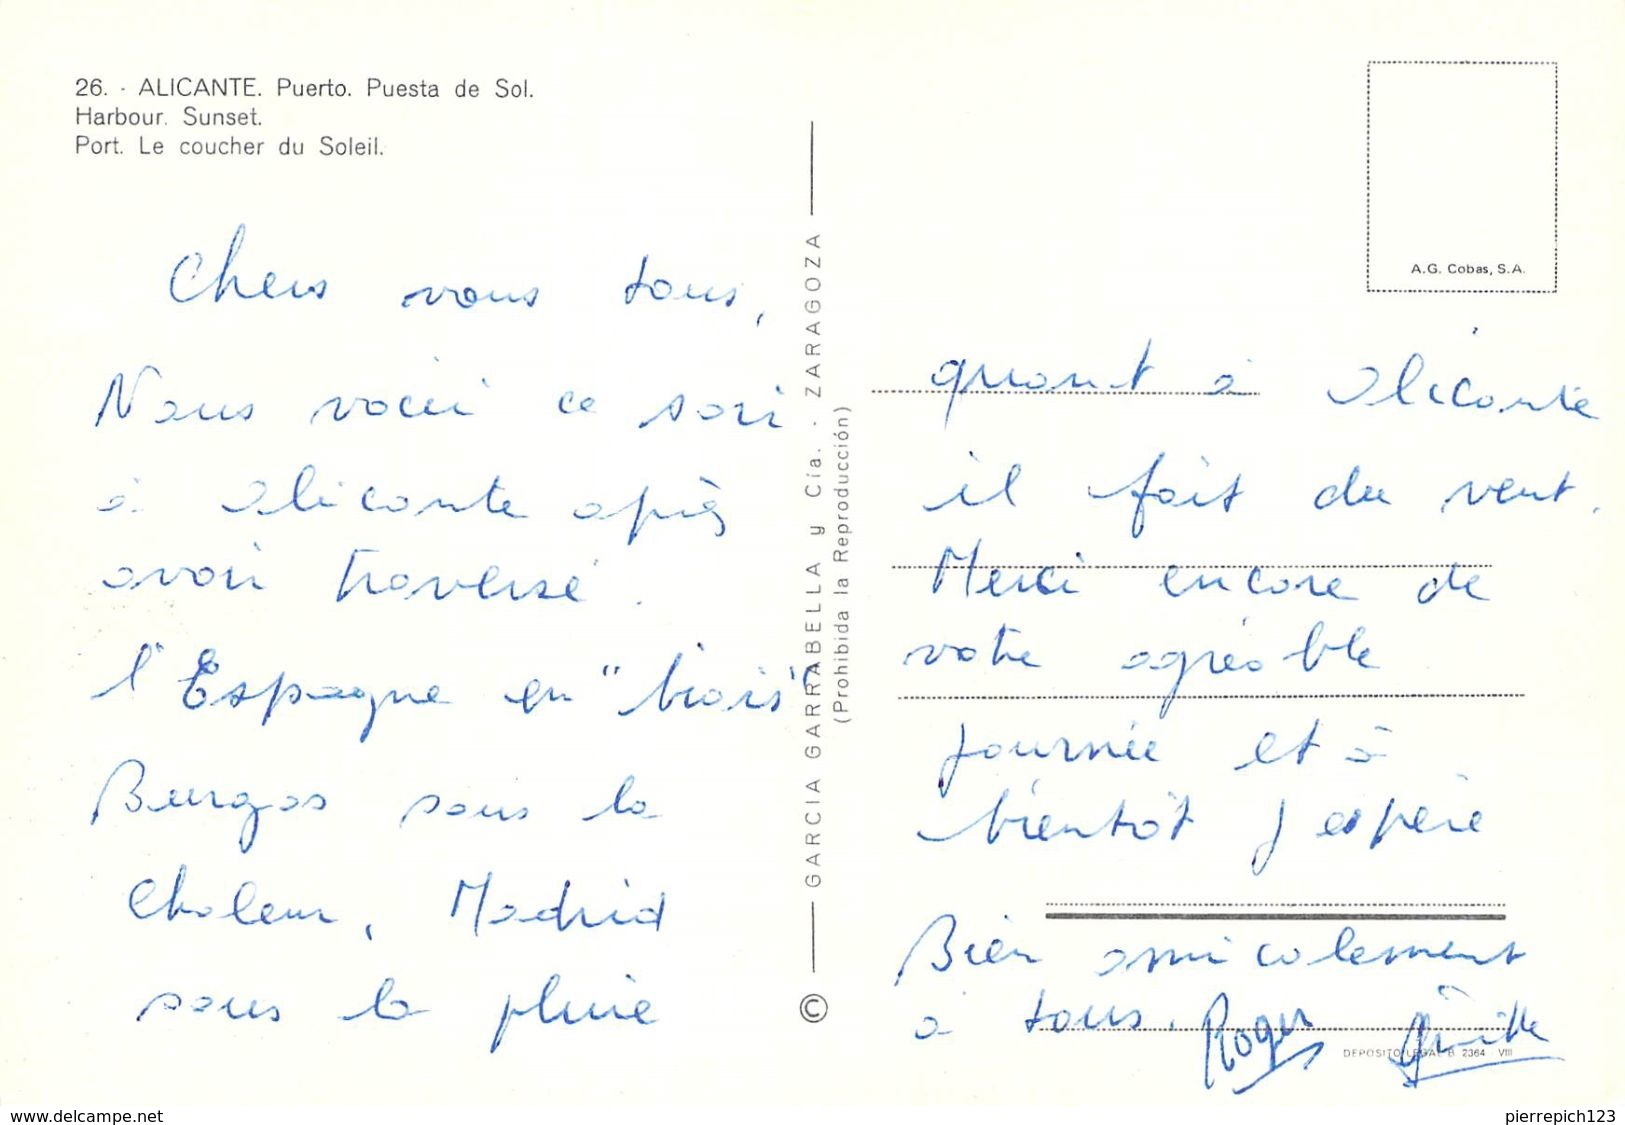 26. - ALICANTE. Puerto. Puesta de Sol.
Harbour. Sunset.
Port. Le coucher du Soleil.
Chers vous tous,
Nous voici ce soir
à Alicante après
avoir traversé
l'Espagne en "biais"
Burgos sous la
chaleur, Madrid
sous la pluie
GARCIA GARRABELLA y Cía. - ZARAGOZA
(Prohibida la Reproducción)
©
A.G. Cobas, S.A.
quant à Alicante
il fait du vent.
Merci encore de
votre agréable
journée et à
bientôt j espère
Bien amicalement
à tous. Roger
DEPOSITO LEGAL B. 2364 - VIII
www.delcampe.net
pierrepich123